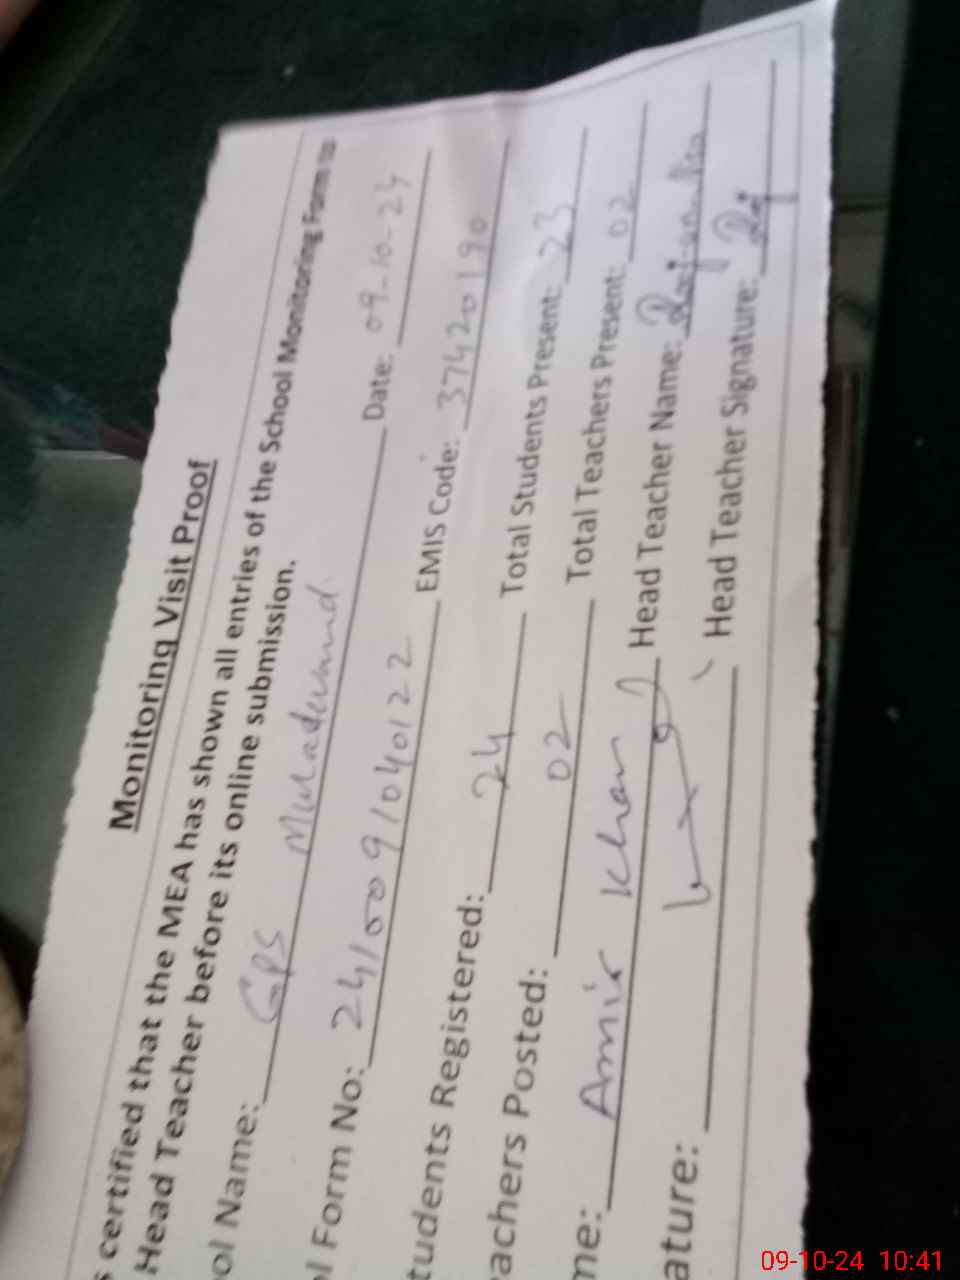 Monitoring Visit Proof
s certified that the MEA has shown all entries of the School Monitoring Form to
Head Teacher before its online submission.
ol Name: GPS Date: 09-10-24
l Form No: 2410091040122 EMIS Code: 37420190
tudents Registered: 24 Total Students Present: 23
eachers Posted: 02 Total Teachers Present: 02
me: Amir Khan Head Teacher Name:
ature: Head Teacher Signature:
09-10-24 10:41